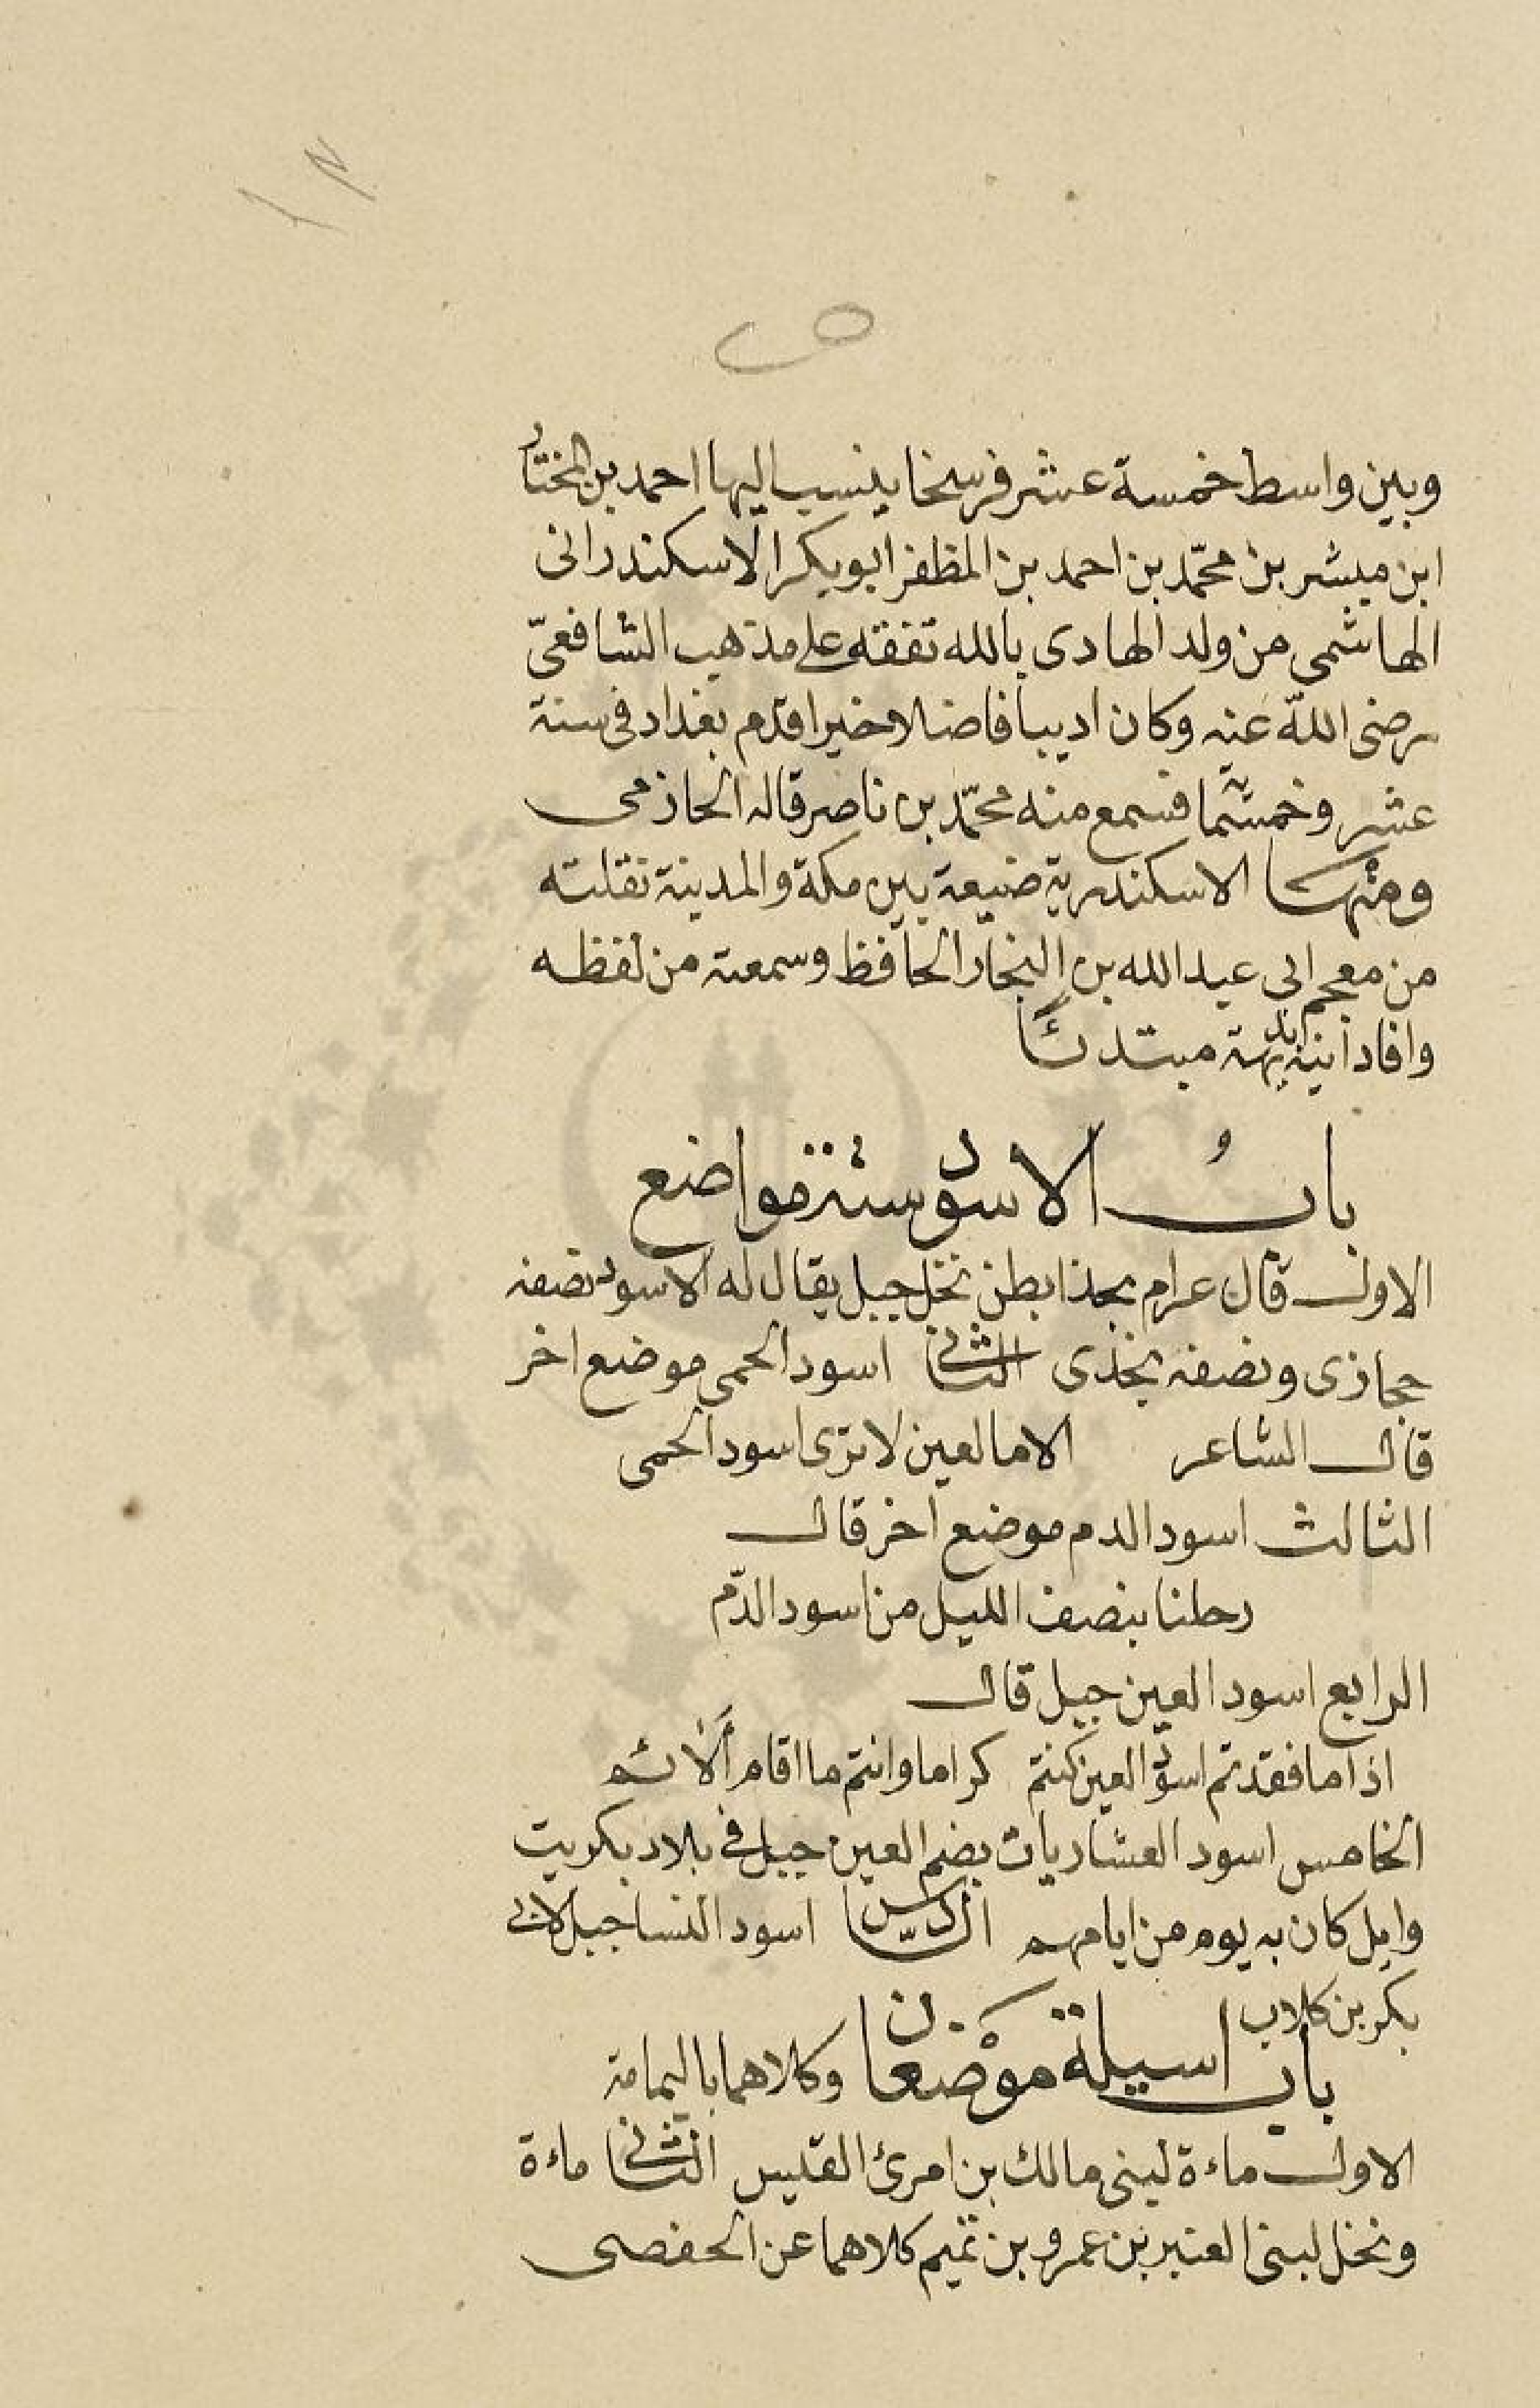 وبين واسط خمسة عشر فرسخا ينسب اليها احمد بن المختار
ابن مبشر بن محمّد بن احمد بن المظفر ابو بكر الاسكندرانى
الهاشمى من ولد الهادى بالله تفقه على مذهب الشافعىّ
رضى اللّه عنه وكان اديبا فاضلا خيرا قدم بغداد فى سنة
عشر وخمسمّا فسمع منه محمّد بن ناصر قاله الحازمى
ومنها الاسكندرية ضيعة بين مكة والمدينة نقلته
من معجم ابى عبد الله بن النجار الحافظ وسمعته من لفظه
وافادنيه مبتدئًا
بابُ الاسود ستة مواضع
الاول قال عرام بحذا بطن نخل جبل يقال له الاسود نصفه
حجازى ونصفه نجدى الثانى اسود الحمى موضع اخر
قال الشاعر الا ما لعين لا ترى اسود الحمى
الثالث اسود الدم موضع اخر قال
رحلنا بنصف الليل من اسود الدّم
الرابع اسود العين جبل قال
اذا ما فقدتم اسود العين كنتم كراما وانتم ما اقام أَلائم
الخامس اسود العشاريات بضم العين جبل فى بلاد بكر بن
وايل كان به يوم من ايامهم السّادس اسود النسا جبل لابى
بكر بن كلاب
باب اسيلة موضعان وكلاهما باليمامة
الاول ماءة لبنى مالك بن امرئ القيس الثانى ماءة
ونخل لبنى العنبر بن عمرو بن تميم كلاهما عن الحفصى